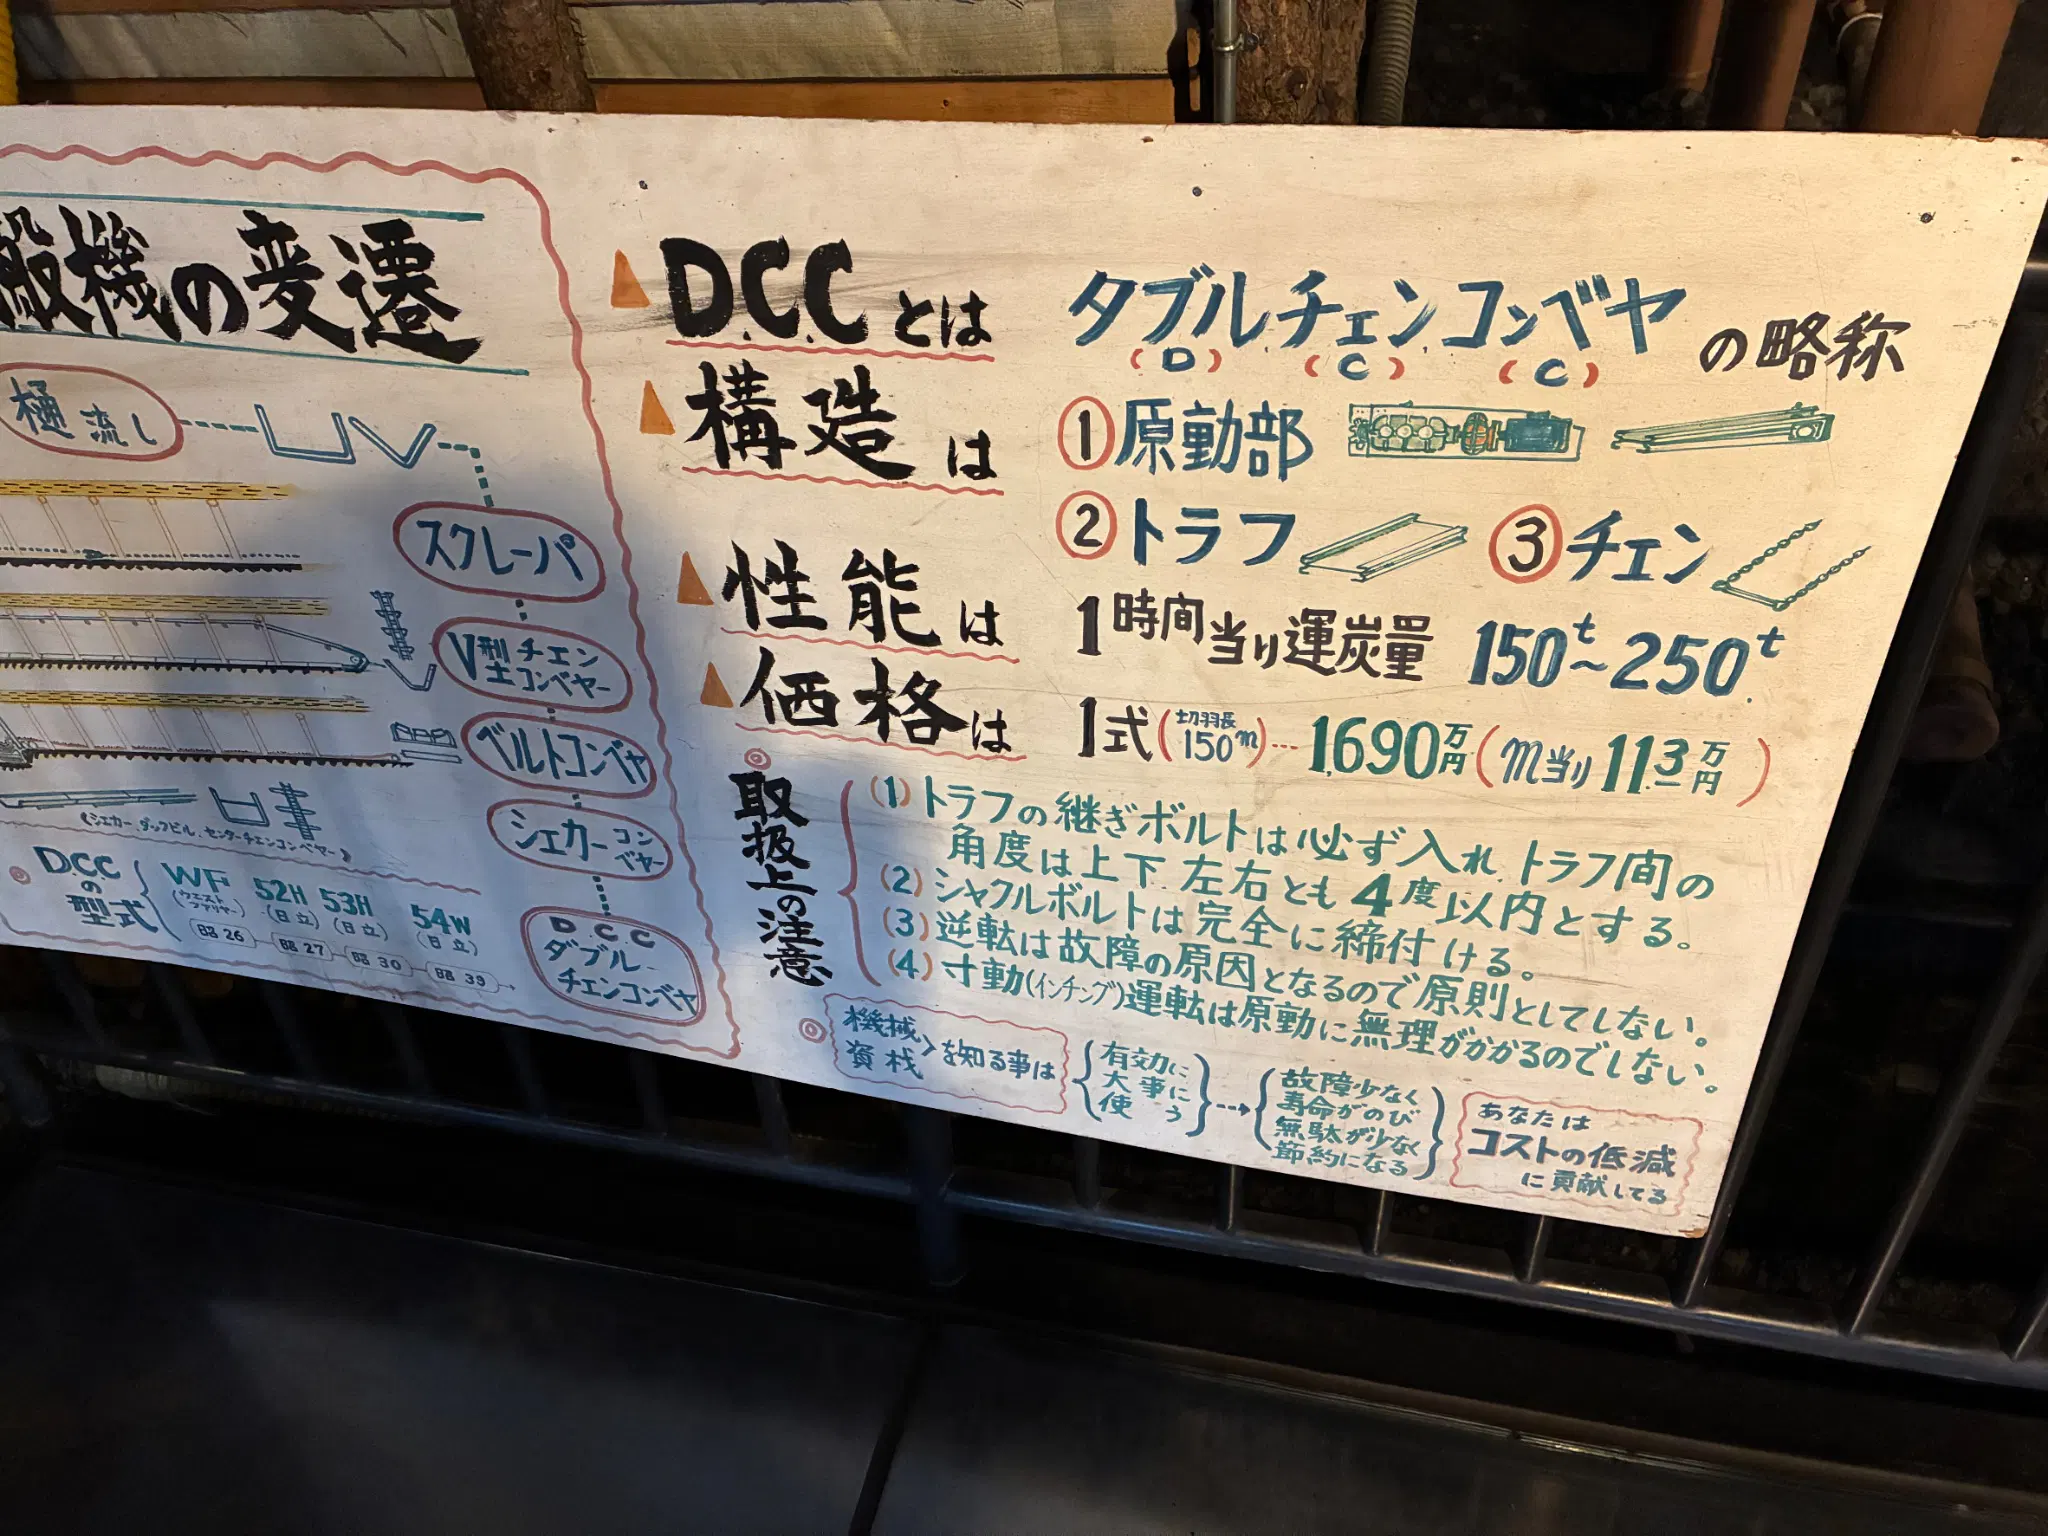 搬機の変遷
樋流し
スクレーパ
V型チエン
コンベヤー
ベルトコンベヤ
シェカーコン
ベヤー
DCC
ダブル
チエンコンベヤ
(シェカー.ダックビル.センターチェンコンベヤー)
D.C.Cの型式
WF 52H 53H 54W
(ウエストファリヤー) (日立) (日立) (日立)
昭26 昭27 昭30 昭39
D.C.Cとは
タブルチェンコンベヤの略称
(D) (C) (C)
構造は
①原動部
②トラフ ③チェン
性能は
1時間当り運炭量 150t~250t
価格は
1式(切羽長150m)…1,690万円(m当り11.3万円)
取扱上の注意
(1)トラフの継ぎボルトは必ず入れ.トラフ間の
角度は上下.左右とも4度以内とする。
(2)シャクルボルトは完全に締付ける。
(3)逆転は故障の原因となるので原則としてしない。
(4)寸動(インチング)運転は原動に無理がかかるのでしない。
機械
資材
を知る事は
有効に
大事に
使う
故障少なく
寿命がのび
無駄が少なく
節約になる
あなたは
コストの低減
に貢献してる